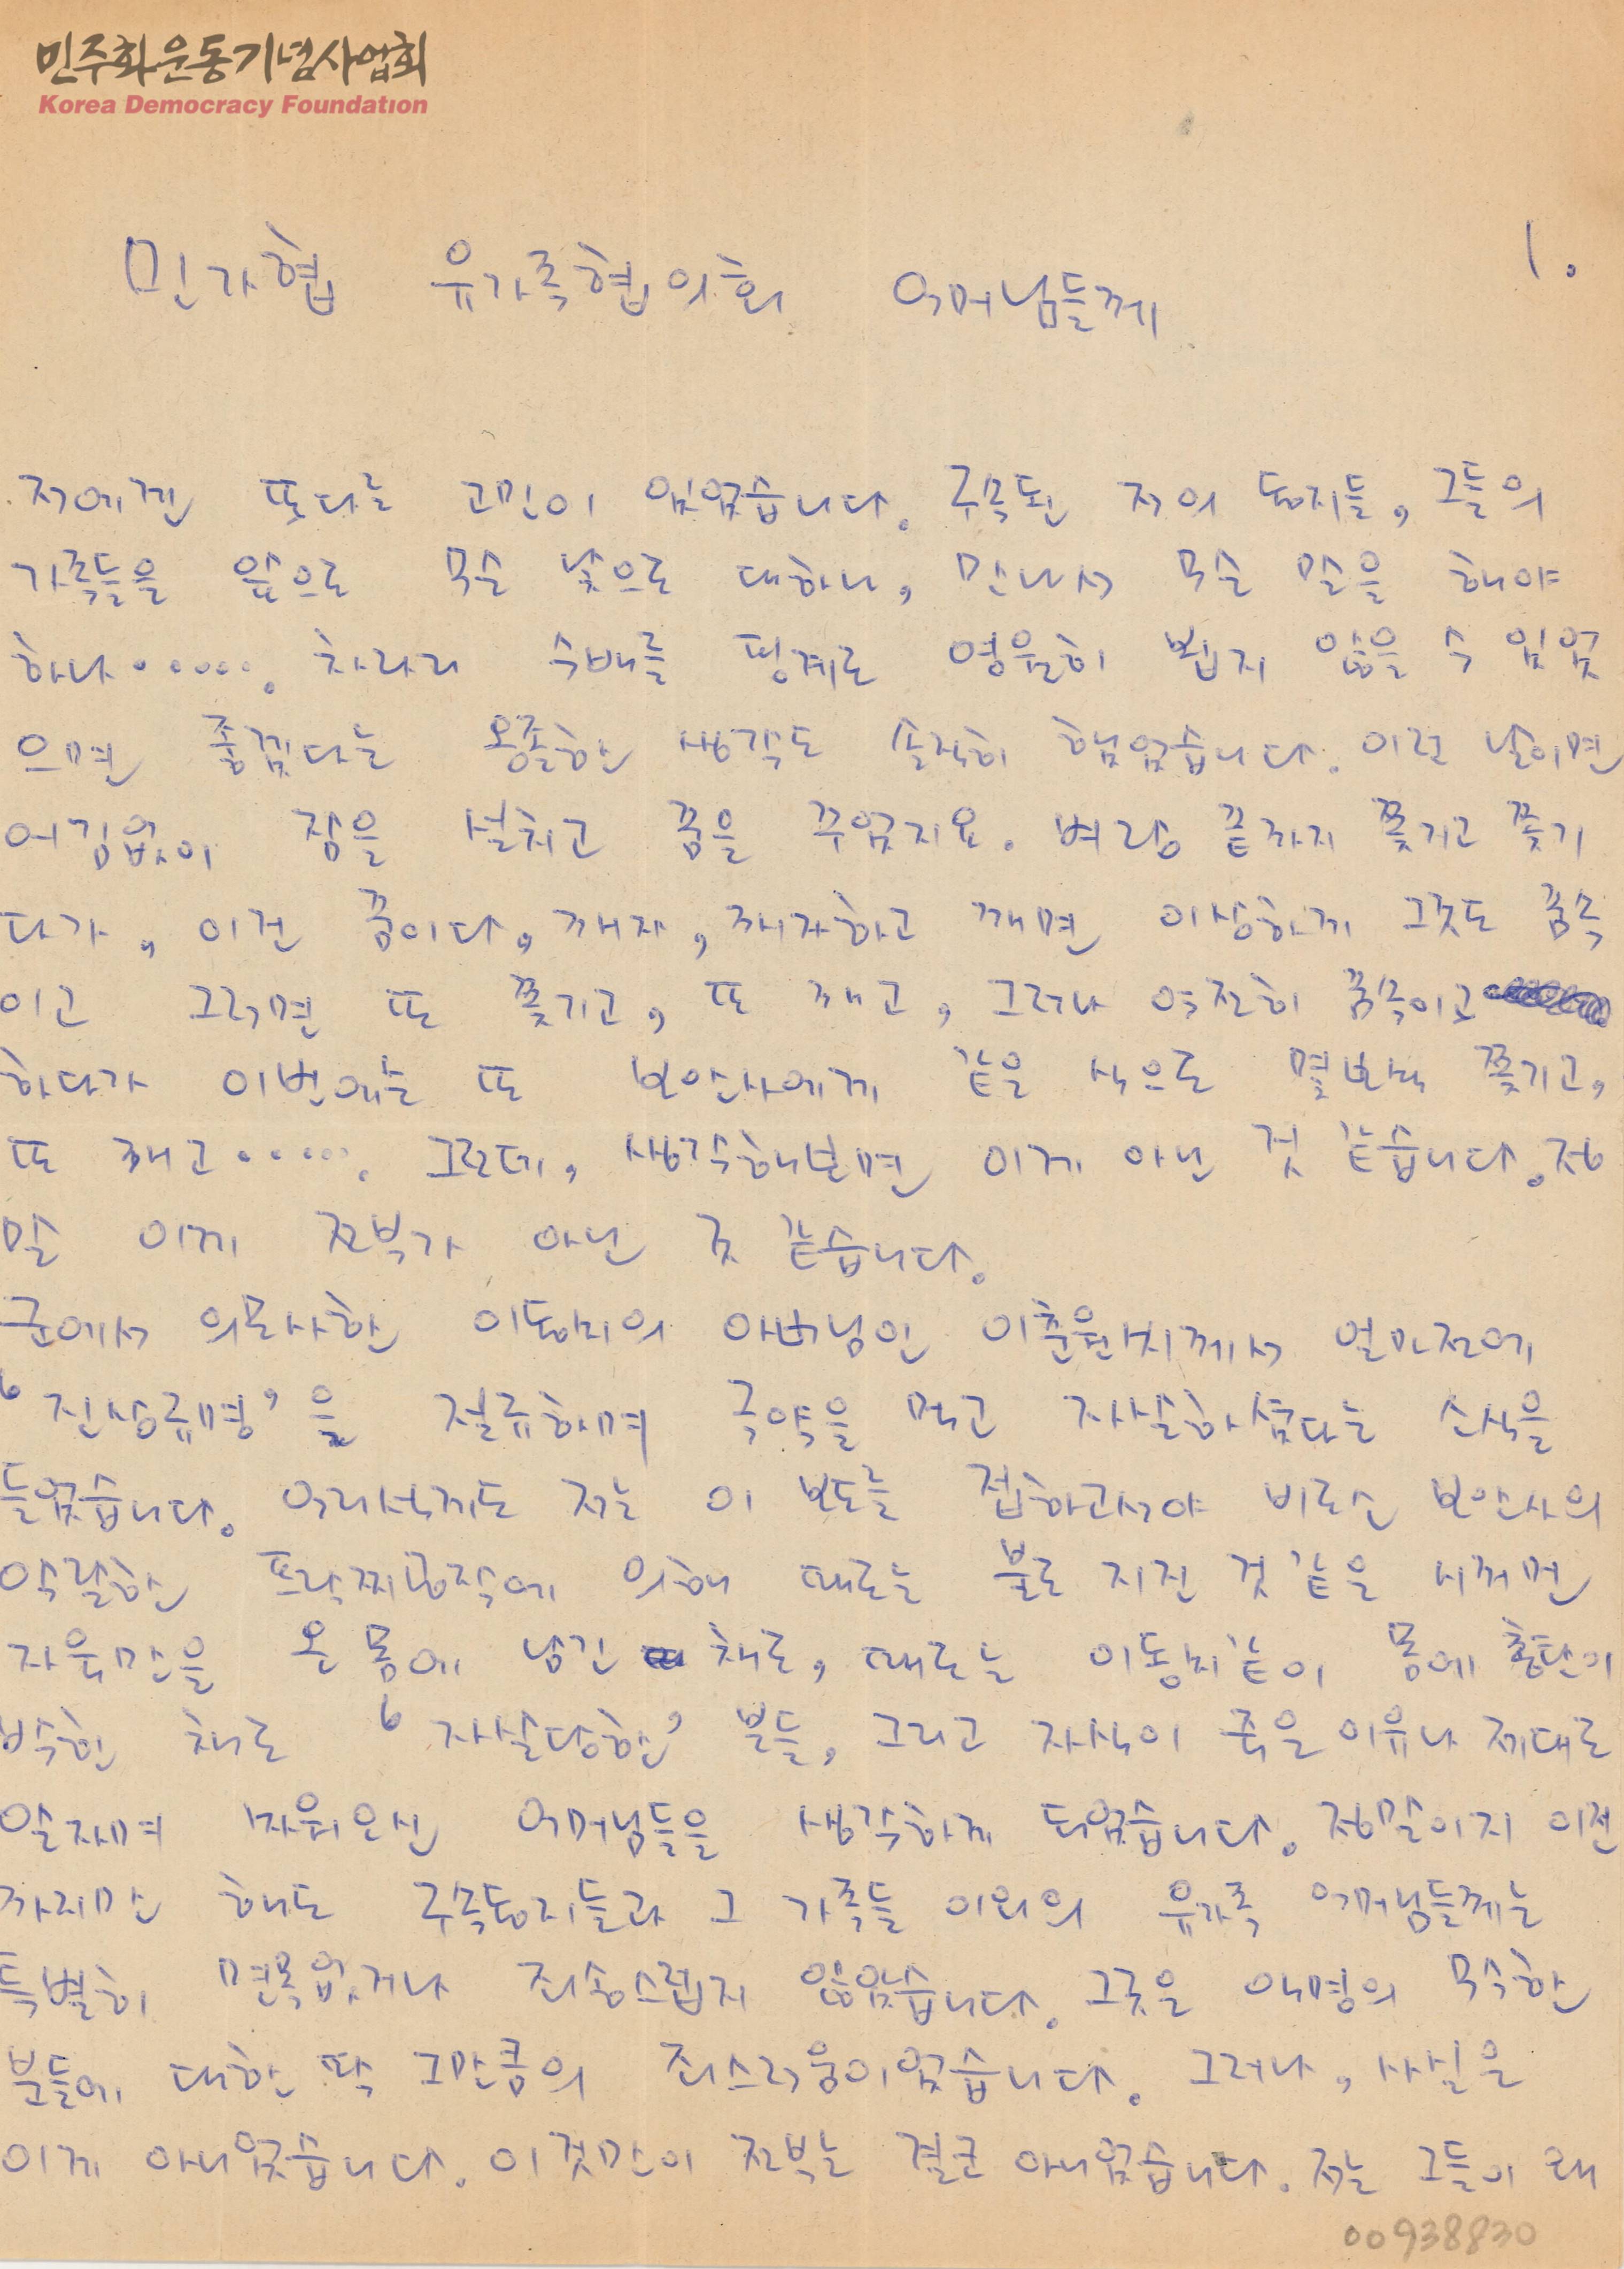 민주화운동기념사업회
Korea Democracy Foundation
1.
민가협 유가족협의회 어머님들께
저에겐 또다른 고민이 있었습니다. 구속된 저의 동지들, 그들의
가족들을 앞으로 무슨 낯으로 대하나, 만나서 무슨 말을 해야
하나‥‥‥. 차라리 수배를 핑계로 영원히 뵙지 않을 수 있었
으면 좋겠다는 옹졸한 생각도 솔직히 했었습니다. 이런 날이면
어김없이 잠을 설치고 꿈을 꾸었지요. 벼랑 끝까지 쫓기고 쫓기
다가, 이건 꿈이다, 깨자, 깨자하고 깨면 이상하게 그곳도 꿈속
이고 그러면 또 쫓기고, 또 깨고, 그러나 여전히 꿈속이고
하다가 이번에는 또 보안사에게 같은 식으로 몇번씩 쫓기고,
또 깨고‥‥‥. 그런데, 생각해보면 이게 아닌 것 같습니다. 정
말 이게 전부가 아닌 것 같습니다.
군에서 의문사한 이동지의 아버님인 이춘원씨께서 얼마전에
‘진상규명’을 절규하며 극약을 먹고 자살하셨다는 소식을
들었습니다. 어리석게도 저는 이 보도를 접하고서야 비로소 보안사의
악랄한 프락찌공작에 의해 때로는 불로 지진 것 같은 시꺼먼
자욱만을 온 몸에 남긴 채로, 때로는 이동지같이 몸에 총탄이
박힌 채로 ‘자살당한’ 분들, 그리고 자식이 죽은 이유나 제대로
알자며 싸워오신 어머님들을 생각하게 되었습니다. 정말이지 이전
까지만 해도 구속동지들과 그 가족들 이외의 유가족 어머님들께는
특별히 면목없거나 죄송스럽지 않았습니다. 그것은 익명의 무수한
분들에 대한 딱 그만큼의 죄스러움이었습니다. 그러나, 사실은
이게 아니었습니다. 이것만이 전부는 결코 아니었습니다. 저는 그들이 왜
00938830